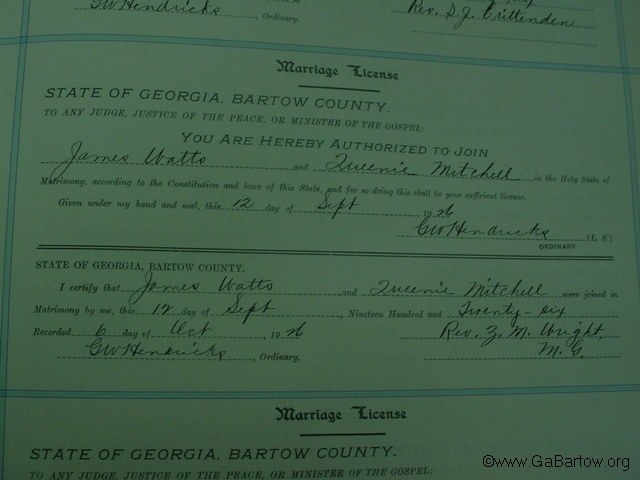 GW Hendricks, Ordinary. Rev. S. J. Crittenden
Marriage License
STATE OF GEORGIA, BARTOW COUNTY.
TO ANY JUDGE, JUSTICE OF THE PEACE, OR MINISTER OF THE GOSPEL:
YOU ARE HEREBY AUTHORIZED TO JOIN
James Watts and Queenie Mitchell in the Holy State of
Matrimony, according to the Constitution and laws of this State, and for so doing this shall be your sufficient license.
Given under my hand and seal, this 12 day of Sept, 1926
GW Hendricks (L. S.)
ORDINARY
STATE OF GEORGIA, BARTOW COUNTY.
I certify that James Watts and Queenie Mitchell were joined in
Matrimony by me, this 12 day of Sept, Nineteen Hundred and Twenty-six
Recorded 6 day of Oct, 1926 Rev. Z. M. Wright,
GW Hendricks, Ordinary. M. G.
Marriage License
STATE OF GEORGIA, BARTOW COUNTY.
TO ANY JUDGE, JUSTICE OF THE PEACE, OR MINISTER OF THE GOSPEL:
©www.GaBartow.org